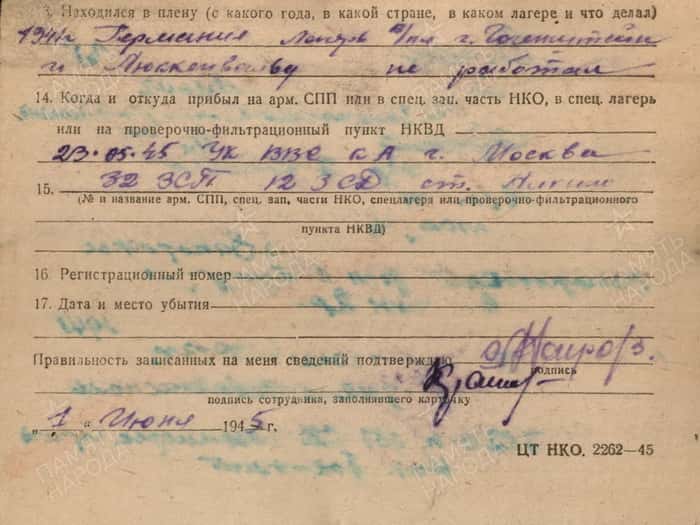 3. Находился в плену (с какого года, в какой стране, в каком лагере и что делал)
1941г Германия Лагерь в/пл г.
и Люккенвальду не работал
14. Когда и откуда прибыл на арм. СПП или в спец. зап. часть НКО, в спец. лагерь
или на проверочно-фильтрационный пункт НКВД
23.05.45 УК ВВС КА г. Москва
15. 32 ЗСП 12 ЗСД ст. Алкино
(№ и название арм. СПП, спец. зап, части НКО, спецлагеря или проверочно-фильтрационного
пункта НКВД)
16. Регистрационный номер
17. Дата и место убытия
Правильность записанных на меня сведений подтверждаю
подпись
подпись сотрудника, заполнявшего карточку
„ 1 " Июня 1945 г.
ЦТ НКО. 2262—45
ПАМЯТЬ НАРОДА